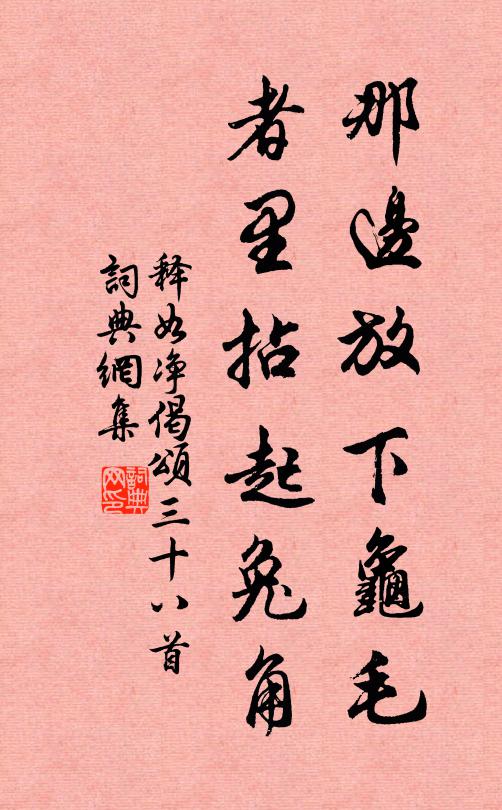 那邊放下龜毛
者里拈起兔角
释如净偈頌三十八首
詞典網集
詞典网印